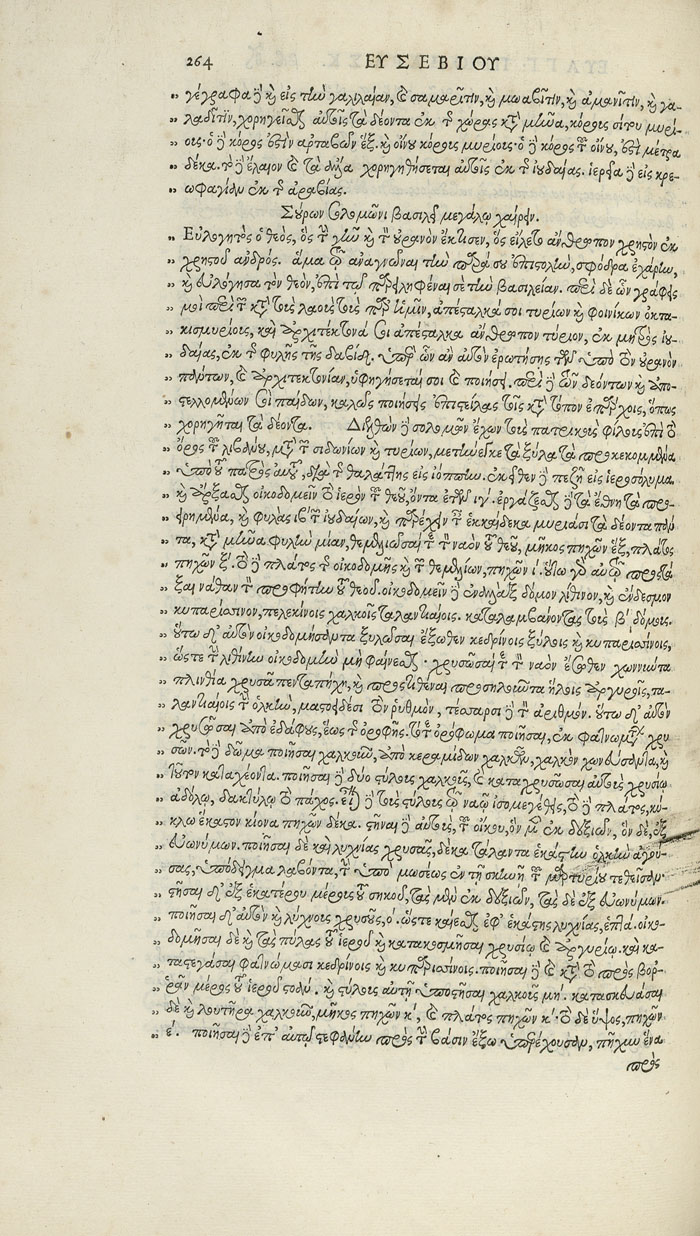 264 ΕΥΣΕΒΙΟΥ
„ γέγραφα δὲ καὶ εἰς τὴν γαλιλαίαν, καὶ σαμαρῖτιν, καὶ μωαβῖτιν, καὶ ἀμανῖτιν, καὶ γα-
„ λαδῖτιν, χορηγεῖσθαι αὐτοῖς τὰ δέοντα ἐκ τῆς χώρας κατὰ μῆνα, κόρους σίτου μυρί-
„ ους· ὁ δὲ κόρος ἐστὶν ἀρταβῶν ἕξ. καὶ οἴνου κόρους μυρίους· ὁ δὲ κόρος τοῦ οἴνου, ἐστὶ μέτρα
„ δέκα. τὸ δὲ ἔλαιον καὶ τὰ ἄλλα χορηγηθήσεται αὐτοῖς ἐκ τῆς ἰουδαίας. ἱερεῖα δὲ εἰς κρε-
„ ωφαγίαν ἐκ τῆς ἀραβίας.
Σούρων Σολομῶνι βασιλεῖ μεγάλῳ χαίρειν.
„ Εὐλογητὸς ὁ θεὸς, ὃς τὸν οὐρανὸν καὶ τὴν γῆν ἔκτισεν, ὃς εἵλετο ἄνθρωπον χρηστὸν ἐκ
„ χρηστοῦ ἀνδρός. ἅμα τῷ ἀναγνῶναι τὴν παρὰ σοῦ ἐπιστολὴν, σφόδρα ἐχάρην,
„ καὶ εὐλόγησα τὸν θεὸν, ἐπὶ τῷ παρειληφέναι σὲ τὴν βασιλείαν. περὶ δὲ ὧν γράφεις
„ μοὶ περὶ τῶν κατὰ τοὺς λαοὺς τοὺς παρ' ἡμῖν, ἀπέσταλκά σοι τυρίων καὶ φοινίκων ὀκτα-
„ κισμυρίους, καὶ ἀρχιτέκτονά σοι ἀπέσταλκα ἄνθρωπον τύριον, ἐκ μητρὸς ἰου-
„ δαίας, ἐκ τῆς φυλῆς τῆς δαβίδ. ὑπὲρ ὧν ἂν αὐτὸν ἐρωτήσῃς τῶν ὑπὸ τὸν οὐρανὸν
„ πάντων, καὶ ἀρχιτεκτονίαν, ὑφηγήσεταί σοι καὶ ποιήσει. περὶ δὲ τῶν δεόντων καὶ ἀπο-
„ στελλομένων σοι παίδων, καλῶς ποιήσεις ἐπιστείλας τοῖς κατὰ τόπον ἐπάρχοις, ὅπως
„ χορηγῆται τὰ δέοντα. Διελθὼν δὲ σολομὼν ἔχων τοὺς πατρικοὺς φίλους ἐπὶ τὸ
„ ὄρος τὸ τοῦ λιβάνου, μετὰ τῶν σιδωνίων καὶ τυρίων, μετήνεγκε τὰ ξύλα τὰ προκεκομμένα
„ ὑπὸ τοῦ πατρὸς αὐτοῦ, διὰ τῆς θαλάττης εἰς ἰόππην. ἐκεῖθεν δὲ πεζῇ εἰς ἱεροσόλυμα.
„ καὶ ἄρξασθαι οἰκοδομεῖν τὸ ἱερὸν τοῦ θεοῦ, ὄντα ἐτῶν ιγ΄. ἐργάζεσθαι δὲ τὰ ἔθνη τὰ προ-
„ ειρημένα, καὶ φυλὰς ιβ΄ τῶν ἰουδαίων, καὶ παρέχειν ταῖς ἑκκαίδεκα μυριάσι τὰ δέοντα πάν
„ τα, κατὰ μῆνα φυλὴν μίαν, θεμελιῶσαί τε τὸν ναὸν τοῦ θεοῦ, μῆκος πηχῶν ἕξ, πλάτος
„ πηχῶν ξ΄. τὸ δὲ πλάτος τῆς οἰκοδομῆς καὶ τῶν θεμελίων, πηχῶν ι΄. οὕτω γὰρ αὐτῷ προστά
„ ξαι νάθαν τὸν προφήτην τοῦ θεοῦ. οἰκοδομεῖν δὲ ἐναλλὰξ δόμον λίθινον, καὶ ἔνδεσμον
„ κυπαρίσσινον, πελεκίνοις χαλκοῖς ταλαντιαίοις. καταλαμβάνοντας τοὺς β΄ δόμους.
„ οὕτω δ' αὐτὸν οἰκοδομήσαντα ξυλῶσαι ἔξωθεν κεδρίνοις ξύλοις καὶ κυπαρισσίνοις,
„ ὥστε τὴν λιθίνην οἰκοδομὴν μὴ φαίνεσθαι. χρυσῶσαί τε τὸν ναὸν ἔσωθεν χωννύντα
„ πλινθία χρυσᾶ πενταπήχη, καὶ προστιθέναι προσηλοῦντα ἥλοις ἀργυροῖς, τα-
„ λαντιαίοις τὴν ὁλκὴν, μαστοειδέσι τὸν ῥυθμὸν, τέσσαρσι δὲ τὸν ἀριθμόν. οὕτω δ' αὐτὸν
„ χρυσῶσαι ἀπὸ ἐδάφους, ἕως τῆς ὀροφῆς. τό τε ὀρόφωμα ποιῆσαι, ἐκ φατνωμάτων χρυ
„ σῶν. τὸ δὲ δῶμα ποιῆσαι χαλκοῦν, ἀπὸ κεραμίδων χαλκῶν, χαλκὸν χωνεύσαντα, καὶ
„ τοῦτον καταχέοντα. ποιῆσαι δὲ δύο στύλους χαλκοῦς, καὶ καταχρυσῶσαι αὐτοὺς χρυσίῳ
„ ἀδόλῳ, δακτύλου τὸ πάχος. εἶναι δὲ τοὺς στύλους τῷ ναῷ ἰσομεγέθεις, τὸ δὲ πλάτος, κύ-
„ κλῳ ἕκαστον κίονα πηχῶν δέκα. στῆσαι δὲ αὐτοὺς, τοῦ οἴκου, ὃν μὲν ἐκ δεξιῶν, ὃν δὲ, ἐξ
„ εὐωνύμων. ποιῆσαι δὲ καὶ λυχνίας χρυσᾶς, δέκα τάλαντα ἑκάστην ὁλκὴν ἀγού-
„ σας, ὑπόδειγμα λαβόντα, τὴν ὑπὸ μωσέως ἐν τῇ σκηνῇ τοῦ μαρτυρίου τεθεῖσαν.
„ στῆσαι δ' ἐξ ἑκατέρου μέρους τοῦ σηκοῦ, τὰς μὲν ἐκ δεξιῶν, τὰς δὲ ἐξ εὐωνύμων.
„ ποιῆσαι δ' αὐτὸν καὶ λύχνους χρυσοῦς, ο΄. ὥστε καίεσθαι ἐφ' ἑκάστης λυχνίας, ἑπτά. οἰκο-
„ δομῆσαι δὲ καὶ τὰς πύλας τοῦ ἱεροῦ καὶ κατακοσμῆσαι χρυσίῳ καὶ ἀργυρίῳ. καὶ κα-
„ ταστεγάσαι φατνώμασι κεδρίνοις καὶ κυπαρισσίνοις. ποιῆσαι δὲ καὶ κατὰ τὸ πρὸς βορ-
„ ρᾶν μέρος τοῦ ἱεροῦ στοάν. καὶ στύλους αὐτῇ ὑποστῆσαι χαλκοῦς μη΄. κατασκευάσαι
„ δὲ καὶ λουτῆρα χαλκοῦν, μῆκος πηχῶν κ΄, καὶ πλάτος πηχῶν κ΄. τὸ δὲ ὕψος, πηχῶν
„ ε΄. ποιῆσαι δὲ ἐπ' αὐτῷ στεφάνην πρὸς τὴν βάσιν ἔξω ὑπερέχουσαν, πῆχυν ἕνα
πρὸς